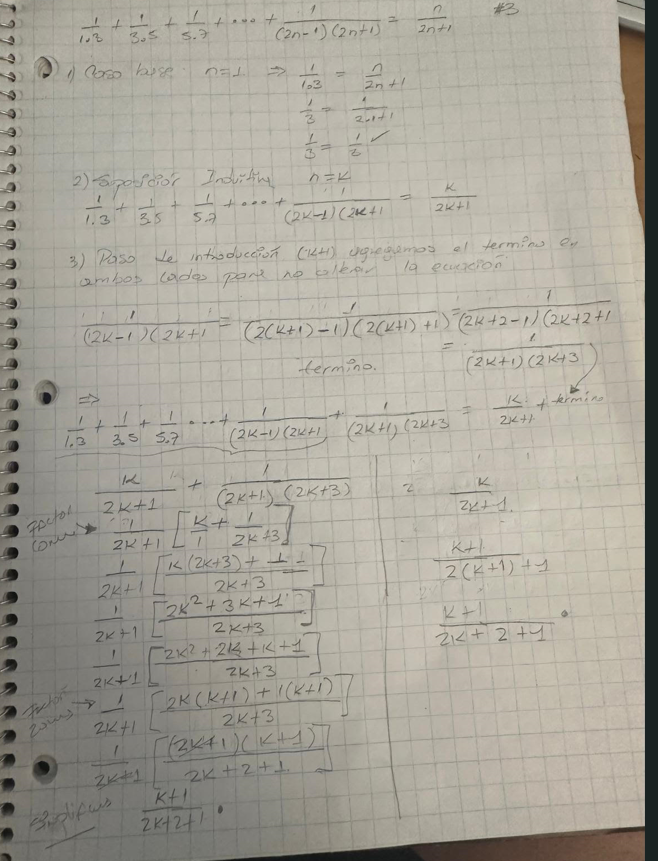 1/1.3 + 1/3.5 + 1/5.7 + ... + 1/(2n-1)(2n+1) = n/2n+1 #3
1) Caso base n=1 ⇒ 1/1.3 = n/2n+1
1/3 = 1/2.1+1
1/3 = 1/3 ✓
2) Suposición Inductiva n=k
1/1.3 + 1/3.5 + 1/5.7 + ... + 1/(2k-1)(2k+1 = k/2k+1
3) Paso de introducción (k+1) agregamos el termino en
ambos lados para no alterar la ecuación
1/(2k-1)(2k+1 = 1/(2(k+1)-1)(2(k+1)+1) = 1/(2k+2-1)(2k+2+1
= 1/(2k+1)(2k+3
termino.
⇒
1/1.3 + 1/3.5 + 1/5.7 ... + 1/(2k-1)(2k+1 + 1/(2k+1)(2k+3 = k/2k+1 + termino
k/2k+1 + 1/(2k+1)(2k+3) k/2k+1.
Factor
1/2k+1 [k/1 + 1/2k+3] k+1/2(k+1)+1
1/2k+1 [k(2k+3)+1.1/2k+3]
1/2k+1 [2k²+3k+1/2k+3] k+1/2k+2+1
1/2k+1 [2k²+2k+k+1/2k+3]
Factor
1/2k+1 [2k(k+1)+1(k+1)/2k+3]
1/2k+1 [(2k+1)(k+1)/2k+2+1]
k+1/2k+2+1